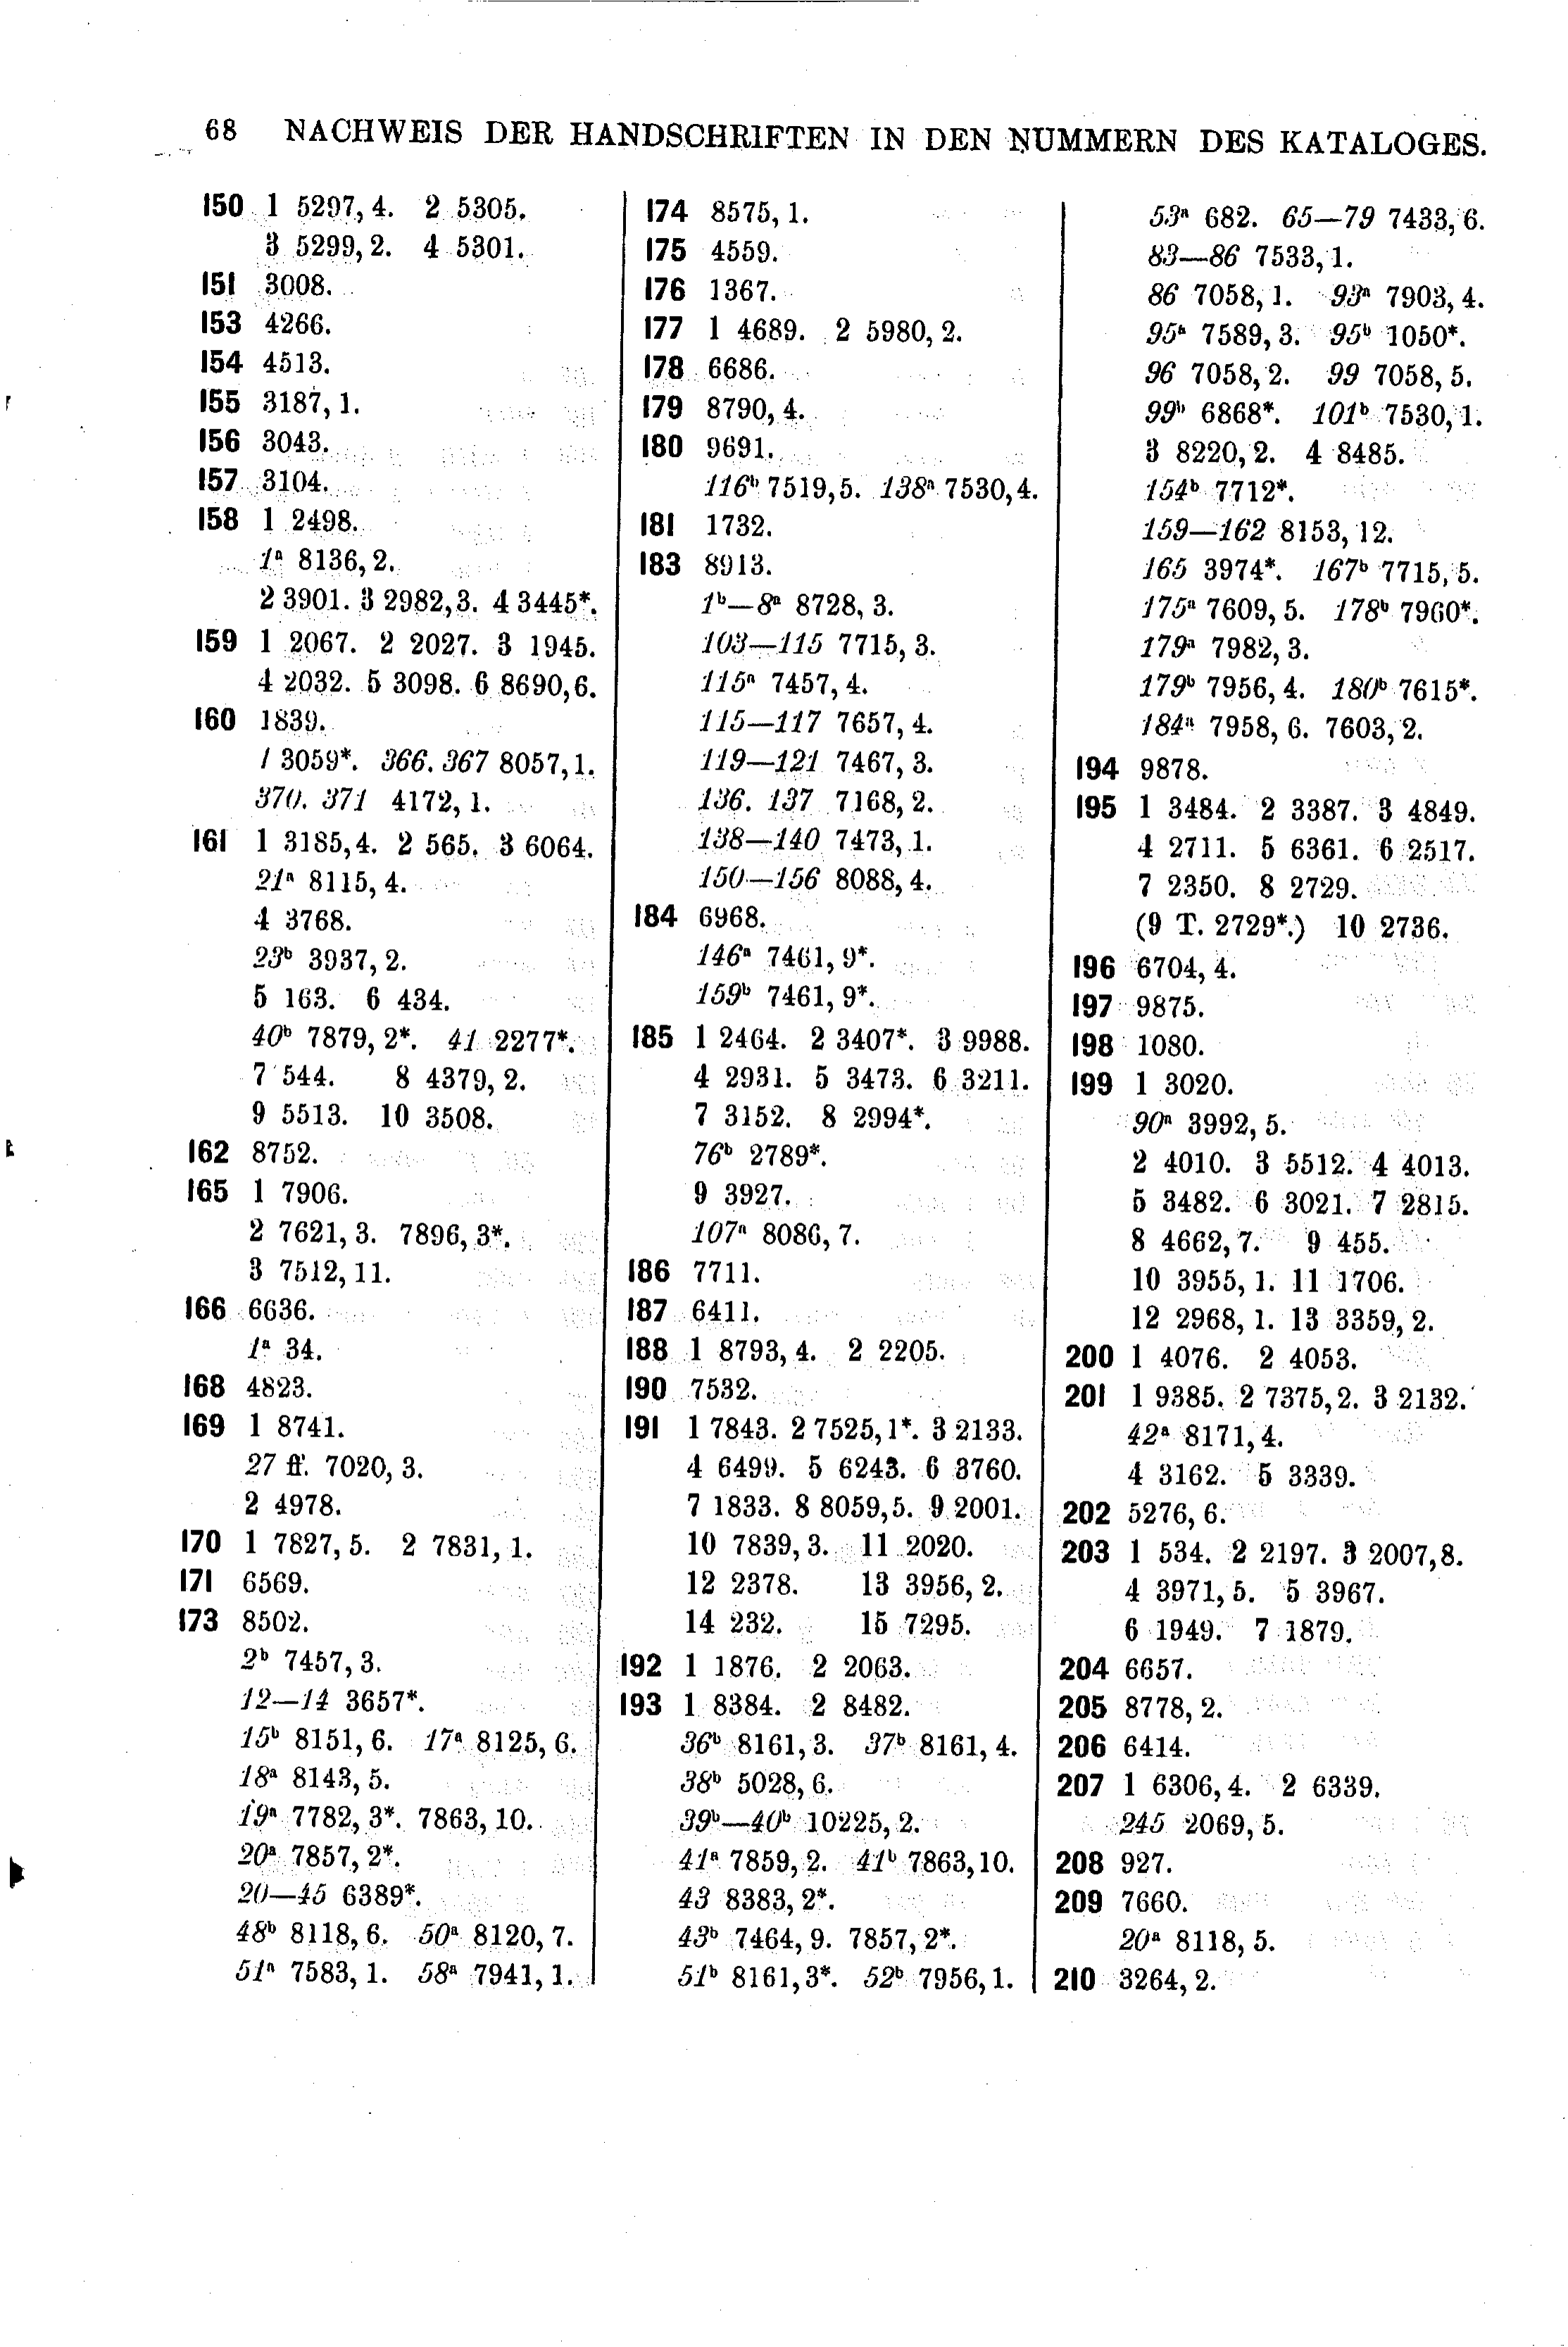 68 NACHWEIS DER HANDSCHRIFTEN IN DEN NUMMERN DES KATALOGES.
150 1 5297, 4. 2 5305.
3 5299, 2. 4 5301.
151 3008.
153 4266.
154 4513.
155 3187, 1.
156 3043.
157 3104.
158 1 2498.
1ᵃ 8136, 2.
2 3901. 3 2982, 3. 4 3445*.
159 1 2067. 2 2027. 3 1945.
4 2032. 5 3098. 6 8690, 6.
160 1839.
1 3059*. 366. 367 8057, 1.
370. 371 4172, 1.
161 1 3185, 4. 2 565. 3 6064.
21ᵃ 8115, 4.
4 3768.
23ᵇ 3937, 2.
5 163. 6 434.
40ᵇ 7879, 2*. 41 2277*.
7 544. 8 4379, 2.
9 5513. 10 3508.
162 8752.
165 1 7906.
2 7621, 3. 7896, 3*.
3 7512, 11.
166 6636.
1ᵃ 34.
168 4823.
169 1 8741.
27 ff. 7020, 3.
2 4978.
170 1 7827, 5. 2 7831, 1.
171 6569.
173 8502.
2ᵇ 7457, 3.
12—14 3657*.
15ᵇ 8151, 6. 17ᵃ 8125, 6.
18ᵃ 8143, 5.
19ᵃ 7782, 3*. 7863, 10.
20ᵃ 7857, 2*.
20—45 6389*.
48ᵇ 8118, 6. 50ᵃ 8120, 7.
51ᵃ 7583, 1. 58ᵃ 7941, 1.
174 8575, 1.
175 4559.
176 1367.
177 1 4689. 2 5980, 2.
178 6686.
179 8790, 4.
180 9691.
116ᵇ 7519, 5. 138ᵃ 7530, 4.
181 1732.
183 8913.
1ᵇ—8ᵃ 8728, 3.
103—115 7715, 3.
115ᵃ 7457, 4.
115—117 7657, 4.
119—121 7467, 3.
136. 137 7168, 2.
138—140 7473, 1.
150—156 8088, 4.
184 6968.
146ᵃ 7461, 9*.
159ᵇ 7461, 9*.
185 1 2464. 2 3407*. 3 9988.
4 2931. 5 3473. 6 3211.
7 3152. 8 2994*.
76ᵇ 2789*.
9 3927.
107ᵃ 8086, 7.
186 7711.
187 6411.
188 1 8793, 4. 2 2205.
190 7532.
191 1 7843. 2 7525, 1*. 3 2133.
4 6499. 5 6243. 6 3760.
7 1833. 8 8059, 5. 9 2001.
10 7839, 3. 11 2020.
12 2378. 13 3956, 2.
14 232. 15 7295.
192 1 1876. 2 2063.
193 1 8384. 2 8482.
36ᵇ 8161, 3. 37ᵇ 8161, 4.
38ᵇ 5028, 6.
39ᵇ—40ᵇ 10225, 2.
41ᵃ 7859, 2. 41ᵇ 7863, 10.
43 8383, 2*.
43ᵇ 7464, 9. 7857, 2*.
51ᵇ 8161, 3*. 52ᵇ 7956, 1.
53ᵃ 682. 65—79 7433, 6.
83—86 7533, 1.
86 7058, 1. 93ᵃ 7903, 4.
95ᵃ 7589, 3. 95ᵇ 1050*.
96 7058, 2. 99 7058, 5.
99ᵇ 6868*. 101ᵇ 7530, 1.
3 8220, 2. 4 8485.
154ᵇ 7712*.
159—162 8153, 12.
165 3974*. 167ᵇ 7715, 5.
175ᵃ 7609, 5. 178ᵇ 7960*.
179ᵃ 7982, 3.
179ᵇ 7956, 4. 180ᵇ 7615*.
184ᵃ 7958, 6. 7603, 2.
194 9878.
195 1 3484. 2 3387. 3 4849.
4 2711. 5 6361. 6 2517.
7 2350. 8 2729.
(9 T. 2729*.) 10 2736.
196 6704, 4.
197 9875.
198 1080.
199 1 3020.
90ᵃ 3992, 5.
2 4010. 3 5512. 4 4013.
5 3482. 6 3021. 7 2815.
8 4662, 7. 9 455.
10 3955, 1. 11 1706.
12 2968, 1. 13 3359, 2.
200 1 4076. 2 4053.
201 1 9385. 2 7375, 2. 3 2132.
42ᵃ 8171, 4.
4 3162. 5 3339.
202 5276, 6.
203 1 534. 2 2197. 3 2007, 8.
4 3971, 5. 5 3967.
6 1949. 7 1879.
204 6657.
205 8778, 2.
206 6414.
207 1 6306, 4. 2 6339.
245 2069, 5.
208 927.
209 7660.
20ᵃ 8118, 5.
210 3264, 2.